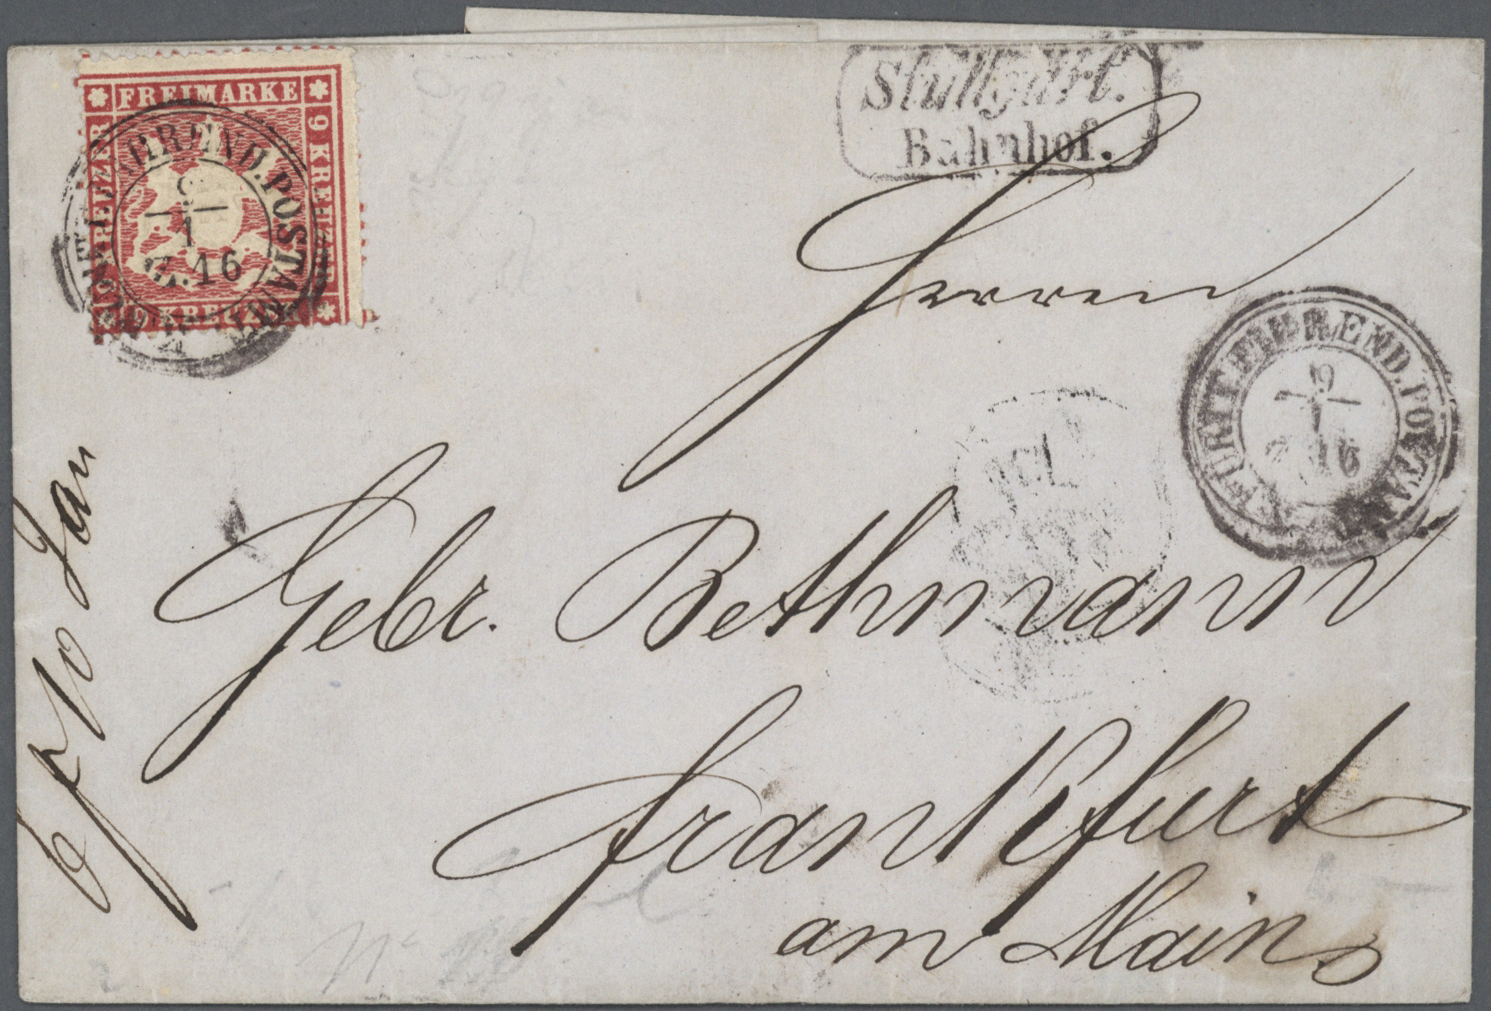 FREIMARKE
9 KREUZER
9 KREUZER
K.WÜRTT.FAHREND.POSTAMT
9
1
Z.16
Stuttgart.
Bahnhof.
Herren
K.WÜRTT.FAHREND.POSTAMT
9
1
Z.16
Gebr. Bethmann
Frankfurt
am Main
10 Jan